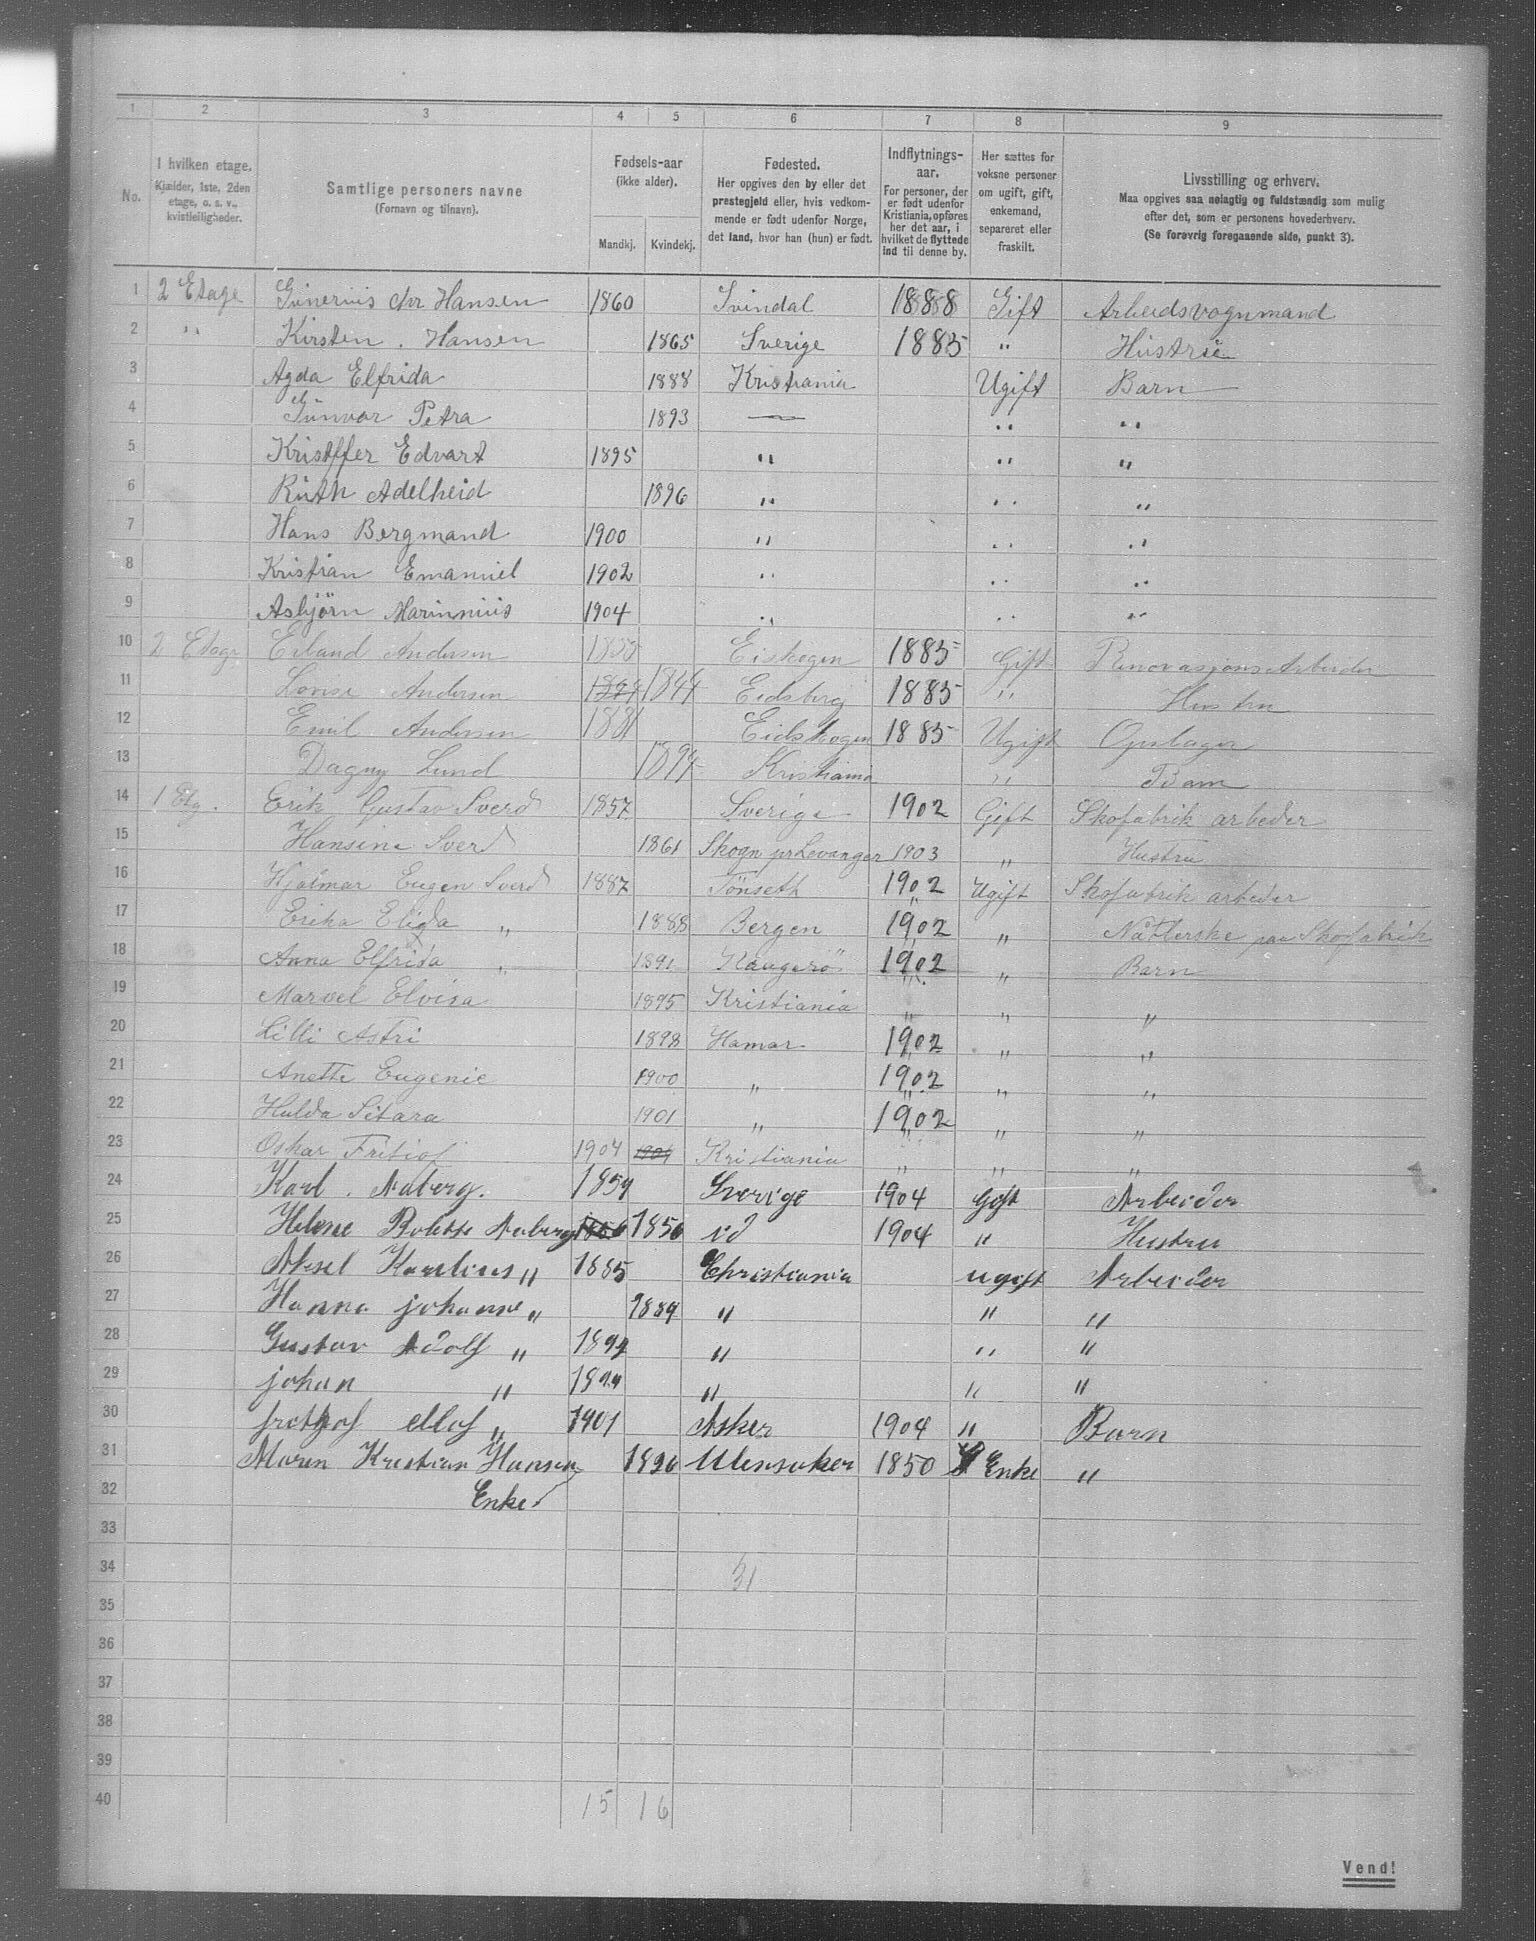 1 2 3 4 5 6 7 8 9
No.
I hvilken etage.
Kjælder, 1ste, 2den
etage, o. s. v.,
kvistleiligheder.
Samtlige personers navne
(Fornavn og tilnavn).
Fødsels-aar
(ikke alder).
Mandkj. Kvindekj.
Fødested.
Her opgives den by eller det
prestegjeld eller, hvis vedkom-
mende er født udenfor Norge,
det land, hvor han (hun) er født.
Indflytnings-
aar.
For personer, der
er født udenfor
Kristiania, opføres
her det aar, i
hvilket de flyttede
ind til denne by.
Her sættes for
voksne personer
om ugift, gift,
enkemand,
separeret eller
fraskilt.
Livsstilling og erhverv.
Maa opgives saa nøiagtig og fuldstændig som mulig
efter det, som er personens hovederhverv.
(Se forøvrig foregaaende side, punkt 3).
1 2 Etage Gunerius Chr Hansen 1860 Svindal 1888 Gift Arbeidsvognmand
2 " Kirsten . Hansen 1865 Sverige 1885 " Hustrue
3 Agda Elfrida 1888 Kristiania Ugift Barn
4 Gunvor Petra 1893 — " "
5 Kristffer Edvart 1895 " " "
6 Ruth Adelheid 1896 " " "
7 Hans Bergmand 1900 " " "
8 Kristian Emanuel 1902 " " "
9 Asbjörn Marinnius 1904 " " "
10 2 Etage Erland Andersen Eiskogen 1885 Gift Renovasjons Arbeider
11 Lovise Andersen 1844 1844 Eidsberg 1885 " Hustru
12 Emil Andersen 1881 Eidskogen 1885 Ugift Opslager
13 Dagny Lund 1894 Kristiania "
14 1 Etg. Erik Gustav Sverd 1857 Sverige 1902 Gift Skofabrik arbeder
15 Hansine Sverd 1861 Skogn pr Levanger 1903 " Hustru
16 Hjalmar Eugen Sverd 1887 Tönseth 1902 Ugift Skofabrik arbeder
17 Erika Elida " 1888 Bergen 1902 " Nåtlerske paa Skofabrik
18 Anna Elfrida " 1891 1902 " Barn
19 Marvel Elvisa 1895 Kristiania " " "
20 Lilli Astri 1898 Hamar 1902 " "
21 Anette Eugenie 1900 " 1902 " "
22 Hulda Sitara 1901 " 1902 " "
23 Oskar Fritiof 1904 1904 Kristiania " " "
24 Karl . Aaberg. 1859 Sverige 1904 Gift Arbeider
25 Helene Bolette Aaberg 1856 1856 id 1904 " Hustru
26 Aksel Karlius " 1885 Christiania ugift Arbeider
27 Hanna johanne " 1889 " " "
28 Gustav Adolf " " " "
29 johan " 1894 " " "
30 " 1901 Asker 1904 " Barn
31 Maren Kristian Hansen 1826 Ulensaker 1850 Enke "
32 Enke
33
34 31
35
36
37
38
39
40 15 16
Vend!